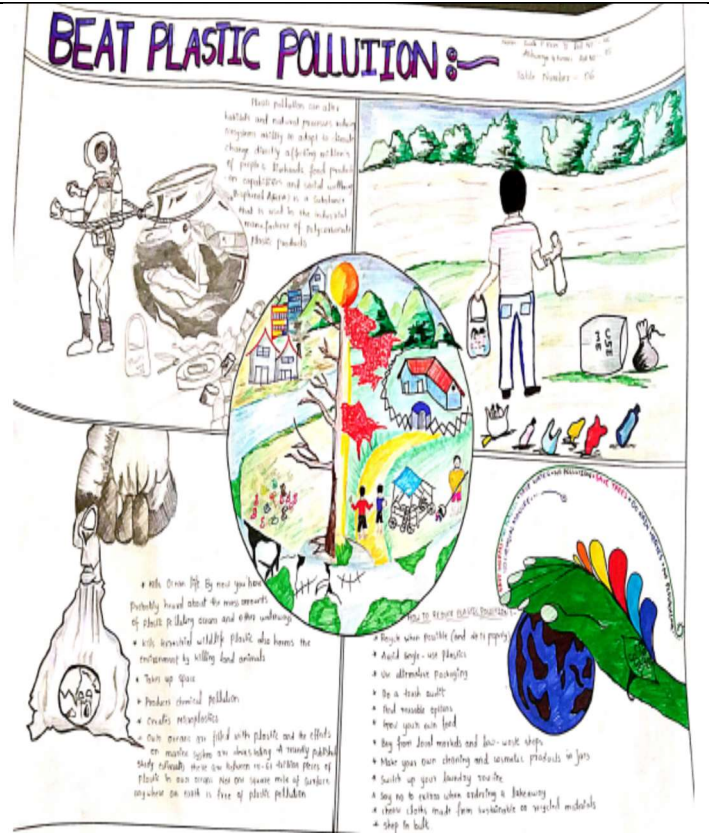 BEAT PLASTIC POLLUTION :~
Table Number - 06
Plastic pollution can alter
habitats and natural processes reducing
ecosystems ability to adapt to climate
change directly affecting millions
of people's livelihoods food product
-ion capabilities and social wellbeing
is a Substance
that is used in the industrial
manufacture of polycarbonate
plastic products
* Kills Ocean life By now you have
Probably heard about the mass amounts
of plastic polluting oceans and other waterways
* kills terrestrial wildlife plastic also harms the
environment by killing land animals
* Takes up space
* Produces chemical pollution
* Creates microplastics
* Our oceans are filled with plastic and the effects
on marine system are devastating. A recently published
study estimates there are between trillion pieces of
plastic in our oceans Not one square mile of surface
anywhere on earth is free of plastic pollution
HOW TO REDUCE PLASTIC POLLUTION :-
* Recycle when possible (and do it properly)
* Avoid single-use plastics
* Use alternative packaging
* Do a trash audit
* Find reusable options
* Grow your own food
* Buy from local markets and low-waste shops
* Make your own cleaning and cosmetic products in jars
* Switch up your laundry routine
* Say no to extras when ordering a takeaway
* choose cloths made from sustainable or recycled materials
* Shop in bulk